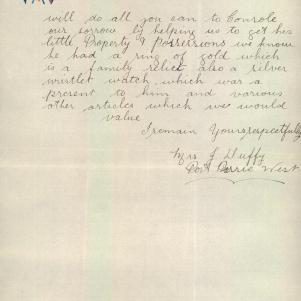 will do all you can to Console
our sorrow by helping us to get his
little Property & Possessions we know
he had a ring of gold which
is a family relict also a silver
wristlet watch which was a
present to him and various
other articles which we would
value
I remain Yours respectfully
Mrs J Duffy
Port Pirie West